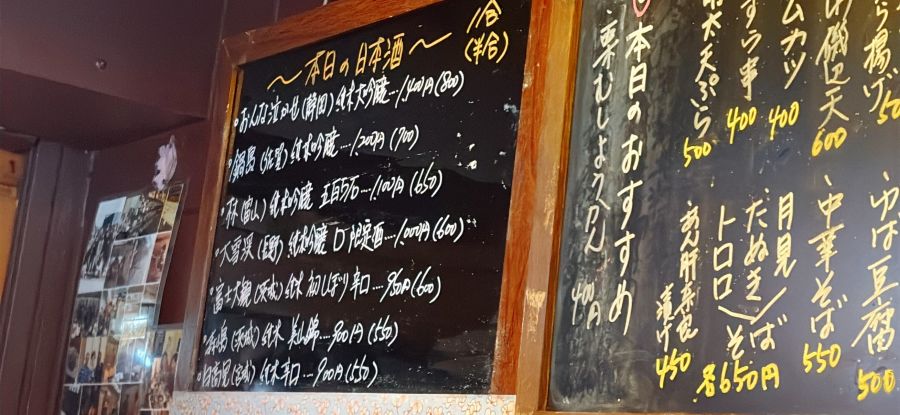 ～本日の日本酒～
1合
(半合)
・おんな泣かせ(静岡)純米大吟醸…1,400円(800)
・鍋島(佐賀)純米吟醸…1,200円(700)
・林(富山)純米吟醸 五百万石…1,100円(650)
・大雪渓(長野)純米吟醸 D限定酒…1,000円(600)
・富士大観(茨城)純米 初しぼり辛口…950円(600)
(茨城)純米 美山錦…900円(550)
・日高見(宮城)純米辛口…900円(550)
本日のおすすめ
栗むしようかん 400円
天ぷら 500
400
ムカツ 400
磯辺天 600
ら揚げ
あん肝奈良漬け 450
月見
たぬき
トロロ
そば
各650円
中華そば 550
ゆば豆腐 500